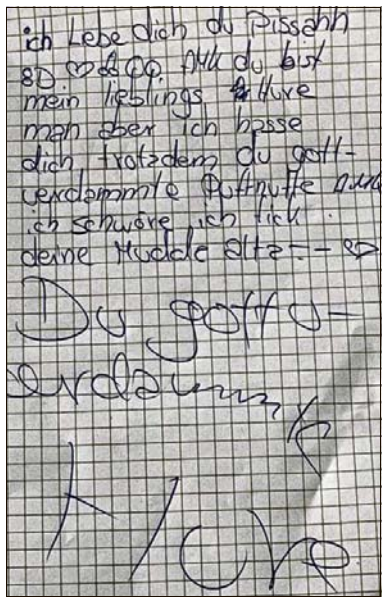 ich Lebe dich du Pissahh
8D ♡ du bist
mein lieblings Hure
man aber ich hasse
dich trotzdem du gott-
verdammte Puffnutte
ich schwöre ich fick
deine Mudde alta -- 8D
Du gottv-
erdammte
Hure